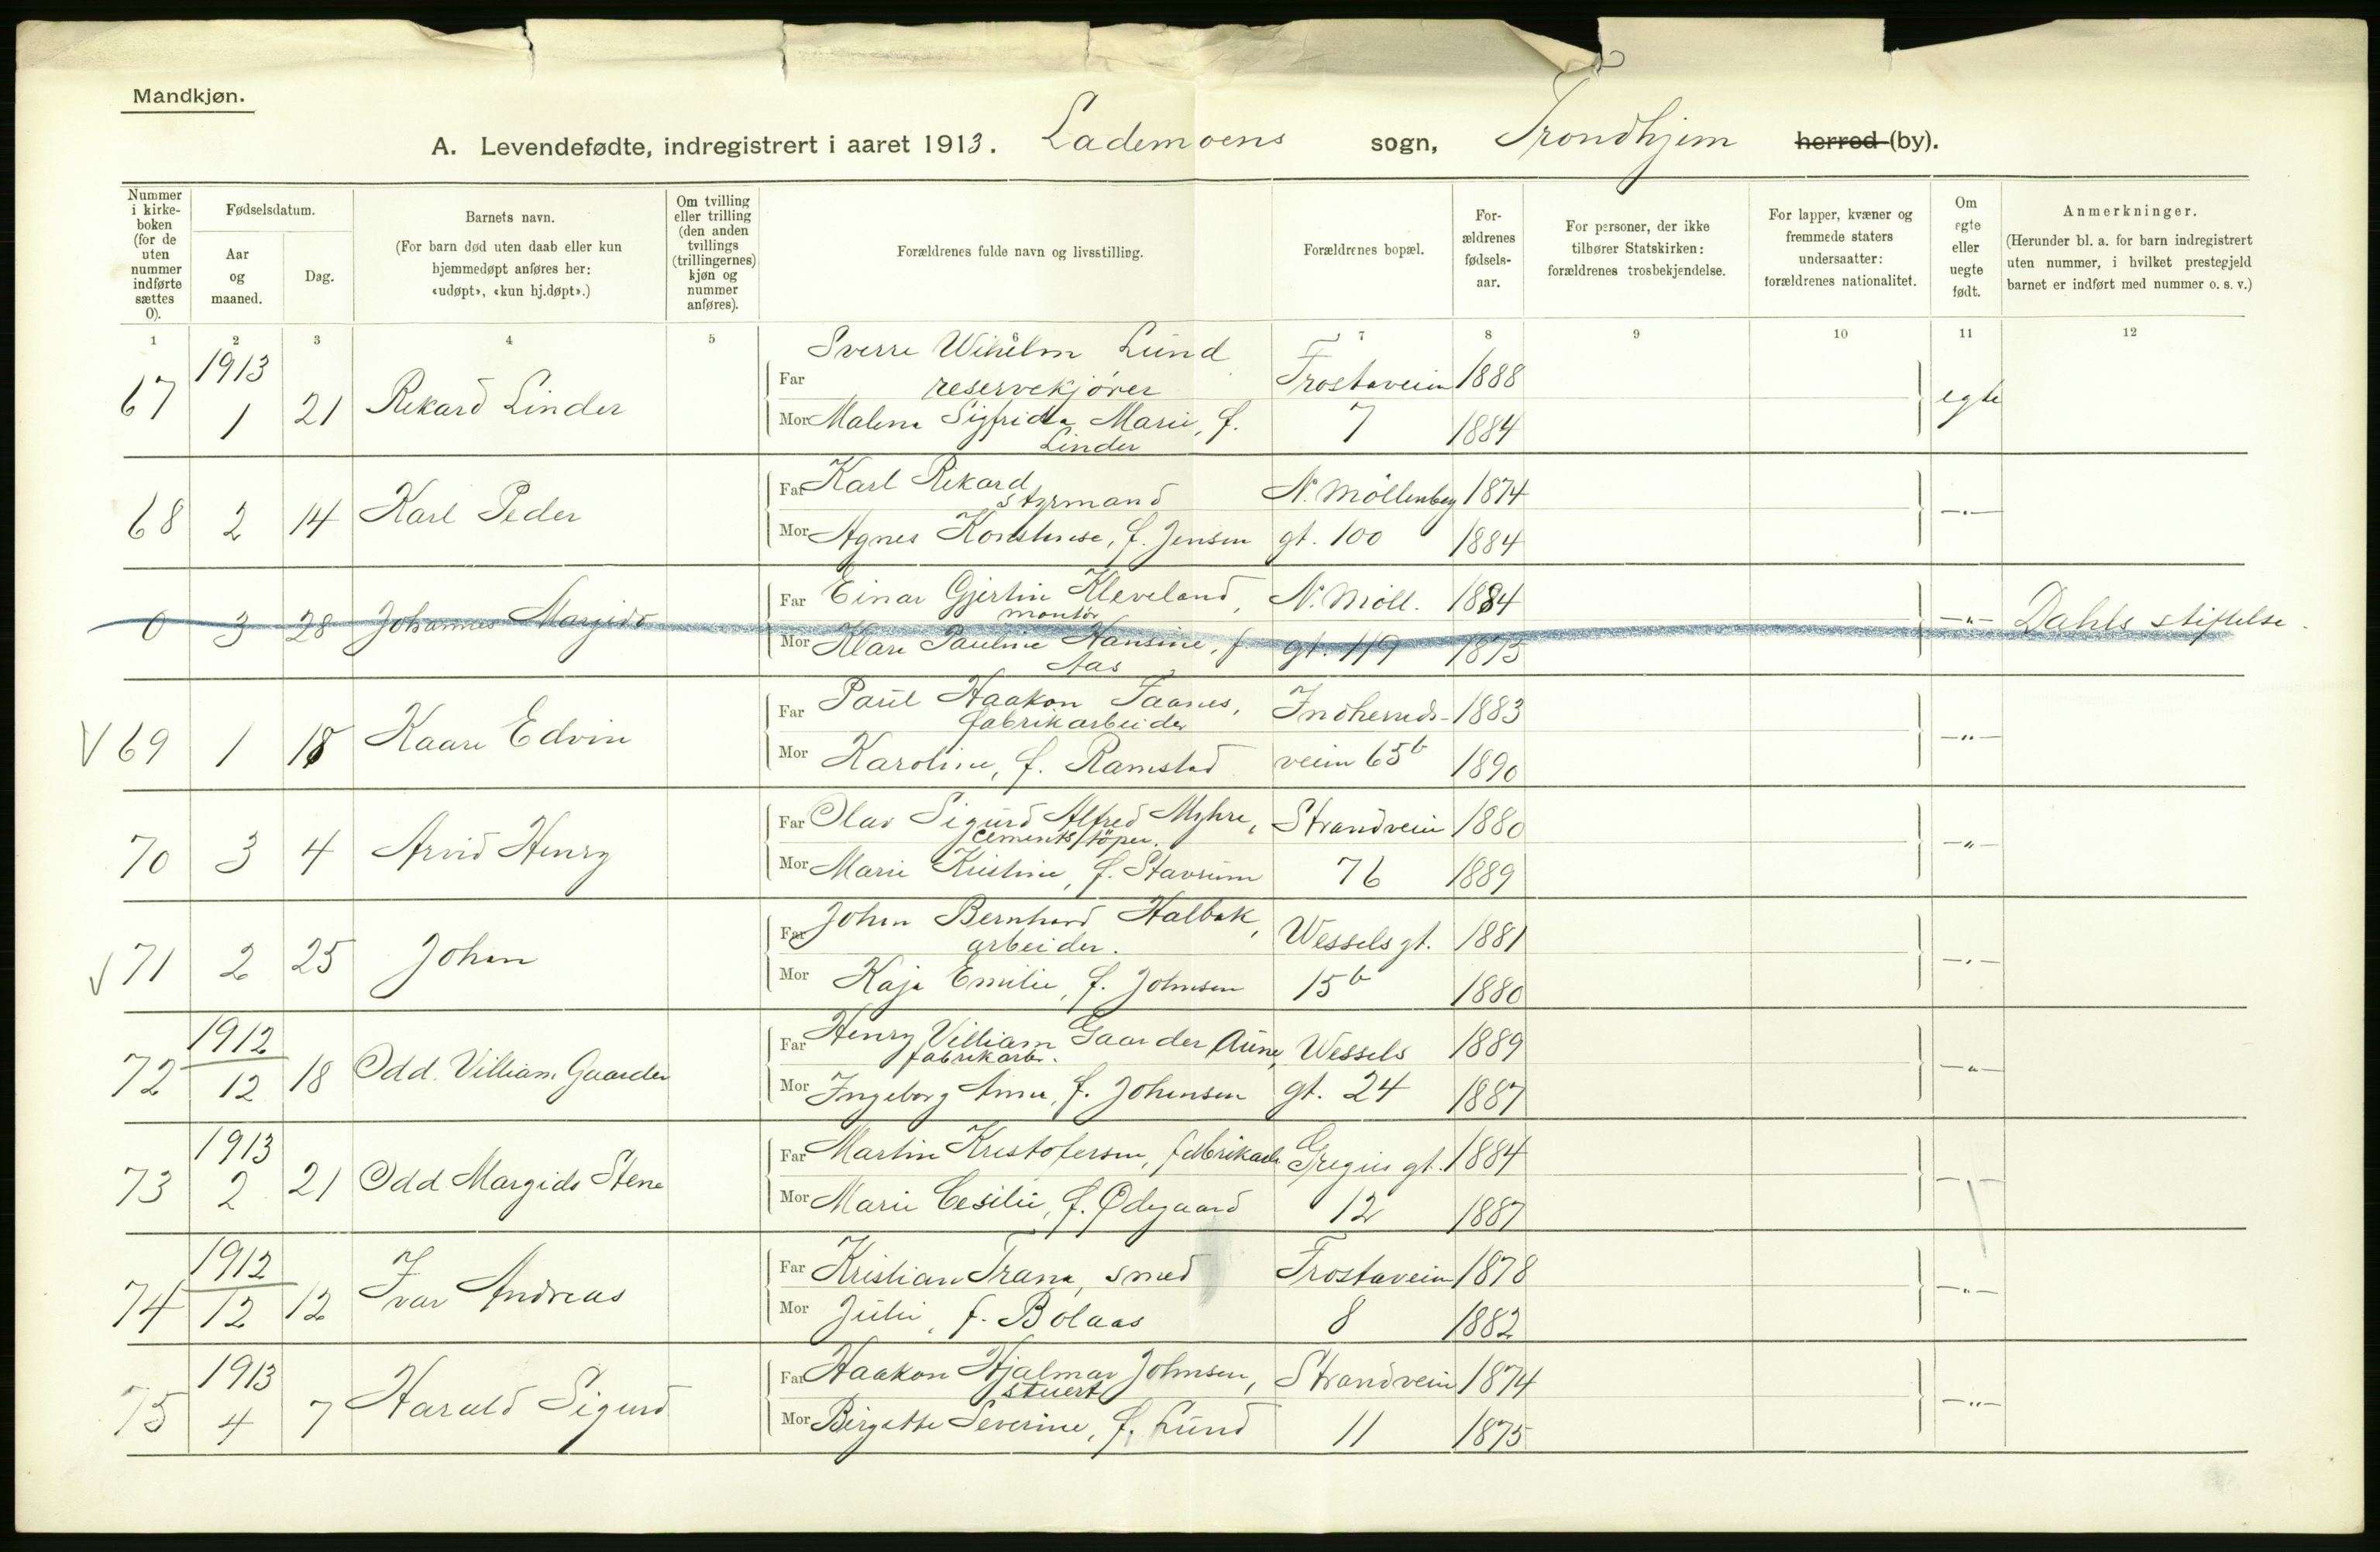 Mandkjøn.
A. Levendefødte, indregistrert i aaret 1913. Lademoens sogn, Trondhjem herred (by).
Nummer i kirkeboken (for de uten nummer indførte sættes 0).
Fødselsdatum.
Aar og maaned.
Dag.
Barnets navn.
(For barn død uten daab eller kun hjemmedøpt anføres her: «udøpt», «kun hj.døpt».)
Om tvilling eller trilling (den anden tvillings (trillingernes) kjøn og nummer anføres).
Forældrenes fulde navn og livsstilling.
Forældrenes bopæl.
Forældrenes fødselsaar.
For personer, der ikke tilhører Statskirken: forældrenes trosbekjendelse.
For lapper, kvæner og fremmede staters undersaatter: forældrenes nationalitet.
Om egte eller uegte født.
Anmerkninger.
(Herunder bl. a. for barn indregistrert uten nummer, i hvilket prestegjeld barnet er indført med nummer o. s. v.)
1 2 3 4 5 7 8 9 10 11 12
1913
67 1 21 Rikard Linder
Far Sverre Wilhelm Lund reservekjører Trostaveien 1888 egte
Mor Malena Sigfrida Marie, f. Linder 7 1884
68 2 14 Karl Peder
Far Karl Rikard styrmand N. Möllenberg 1874 —„—
Mor Agnes Konstanse, f. Jensen gt. 100 1884
0 3 28 Johannes Margido
Far Einar Gjertin Kleveland, montör N. Möll. 1884 —„— Dahls stiftelse.
Mor Klara Pauline Hansine, f. Aas gt. 119 1875
V 69 1 18 Kaare Edvin
Far Paul Haakon Faanes, fabrikarbeider Indherreds- 1883 —„—
Mor Karoline, f. Ramstad veien 65b 1890
70 3 4 Arvid Henry
Far Olav Sigurd Alfred Myhre, cementstöper. Strandveien 1880 —„—
Mor Marie Kristine, f. Stavrum 76 1889
V 71 2 25 Johan
Far Johan Bernhard Halbak, arbeider. Wessels gt. 1881 —„—
Mor Kaja Emilie, f. Johnsen 15b 1880
1912
72 12 18 Odd Villiam Gaarder
Far Henry Villiam Gaarder Aune, fabrikarb. Wessels 1889 —„—
Mor Ingeborg Anna, f. Johansen gt. 24 1887
1913
73 2 21 Odd Margido Stene
Far Martin Kristofersen, fabrikarb. Gregus gt. 1884 —„—
Mor Marie Cesilie, f. Ødegaard 12 1887
1912
74 12 12 Ivar Andreas
Far Kristian Trana, smed Trostaveien 1878 —„—
Mor Julie, f. Bolaas 8 1882
1913
75 4 7 Harald Sigurd
Far Haakon Hjalmar Johnsen, stuert Strandveien 1874 —„—
Mor Birgitte Severine, f. Lund 11 1875